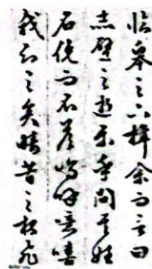 臨皋之下揖余而言曰
赤壁之遊樂乎問其姓
名俛而不答嗚呼噫嘻
我知之矣疇昔之夜飛